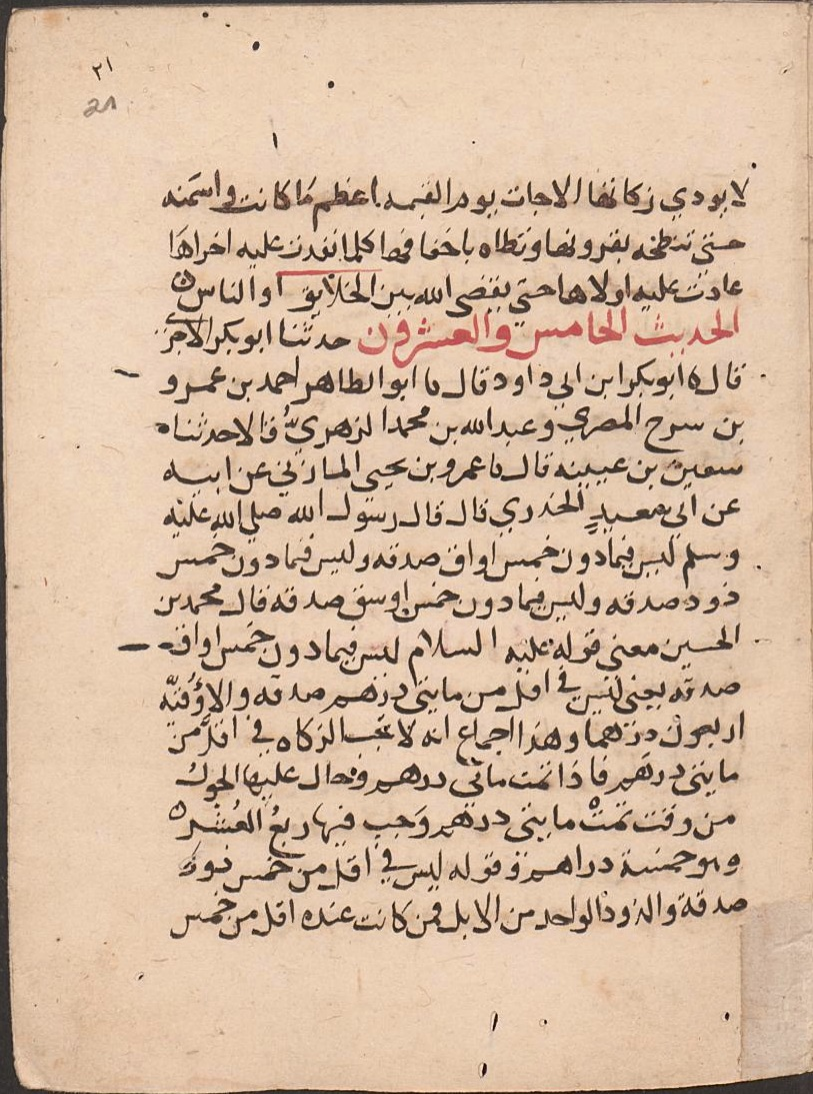 ٢١
21
لا يودي زكاتها الا جات يوم القيمه اعظم ما كانت واسمنه
حتى تنطحه بقرونها وتطاه باخفافها كلما نفدت عليه اخراها
عادت عليه اولاها حتي يقضى الله بين الخلايق او الناس ه
الحديث الخامس والعشرون حدثنا ابو بكر الاجري
قال نا ابو بكر ابن ابي داود قال نا ابو الطاهر احمد بن عمرو
بن سرح المصري وعبد الله بن محمد الزهري قالا حدثنا
سفين بن عيينه قال نا عمرو بن يحيى المازني عن ابيه
عن ابي سعيد الخدري قال قال رسول الله صلي الله عليه
وسلم ليس فيما دون خمس اواق صدقه وليس فيما دون خمس
ذود صدقه وليس فيما دون خمس اوسق صدقه قال محمد بن
الحسين معنى قوله عليه السلام ليس فيما دون خمس اواق
صدقه يعني ليس في اقل من مايتى درهم صدقه والاوقيه
اربعون درهما وهذا اجماع انه لا تجب الزكاه في اقل من
مايتى درهم فاذا تمت مائتى درهم وحال عليها الحول
من وقت تمت مايتى درهم وجب فيها ربع العشر ه
وهو خمسة دراهم وقوله ليس في اقل من خمس ذود
صدقة والذود الواحد من الابل فمن كانت عنده اقل من خمس